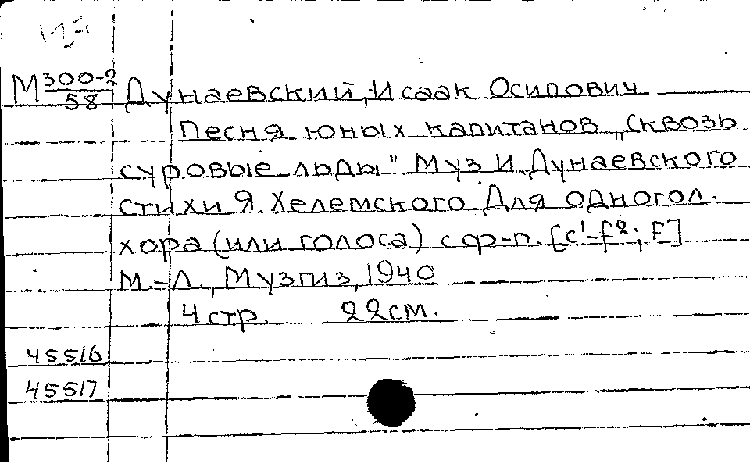 М 300-2/58 Дунаевский, Исаак Осипович
Песня юных капитанов „Сквозь
суровые льды" Муз И. Дунаевского
стихи Я. Хелемского Для одногол.
хора (или голоса) с ф-п. [c'-f²; F]
М.-Л., Музгиз, 1940
4 стр. 22см.
45516
45517